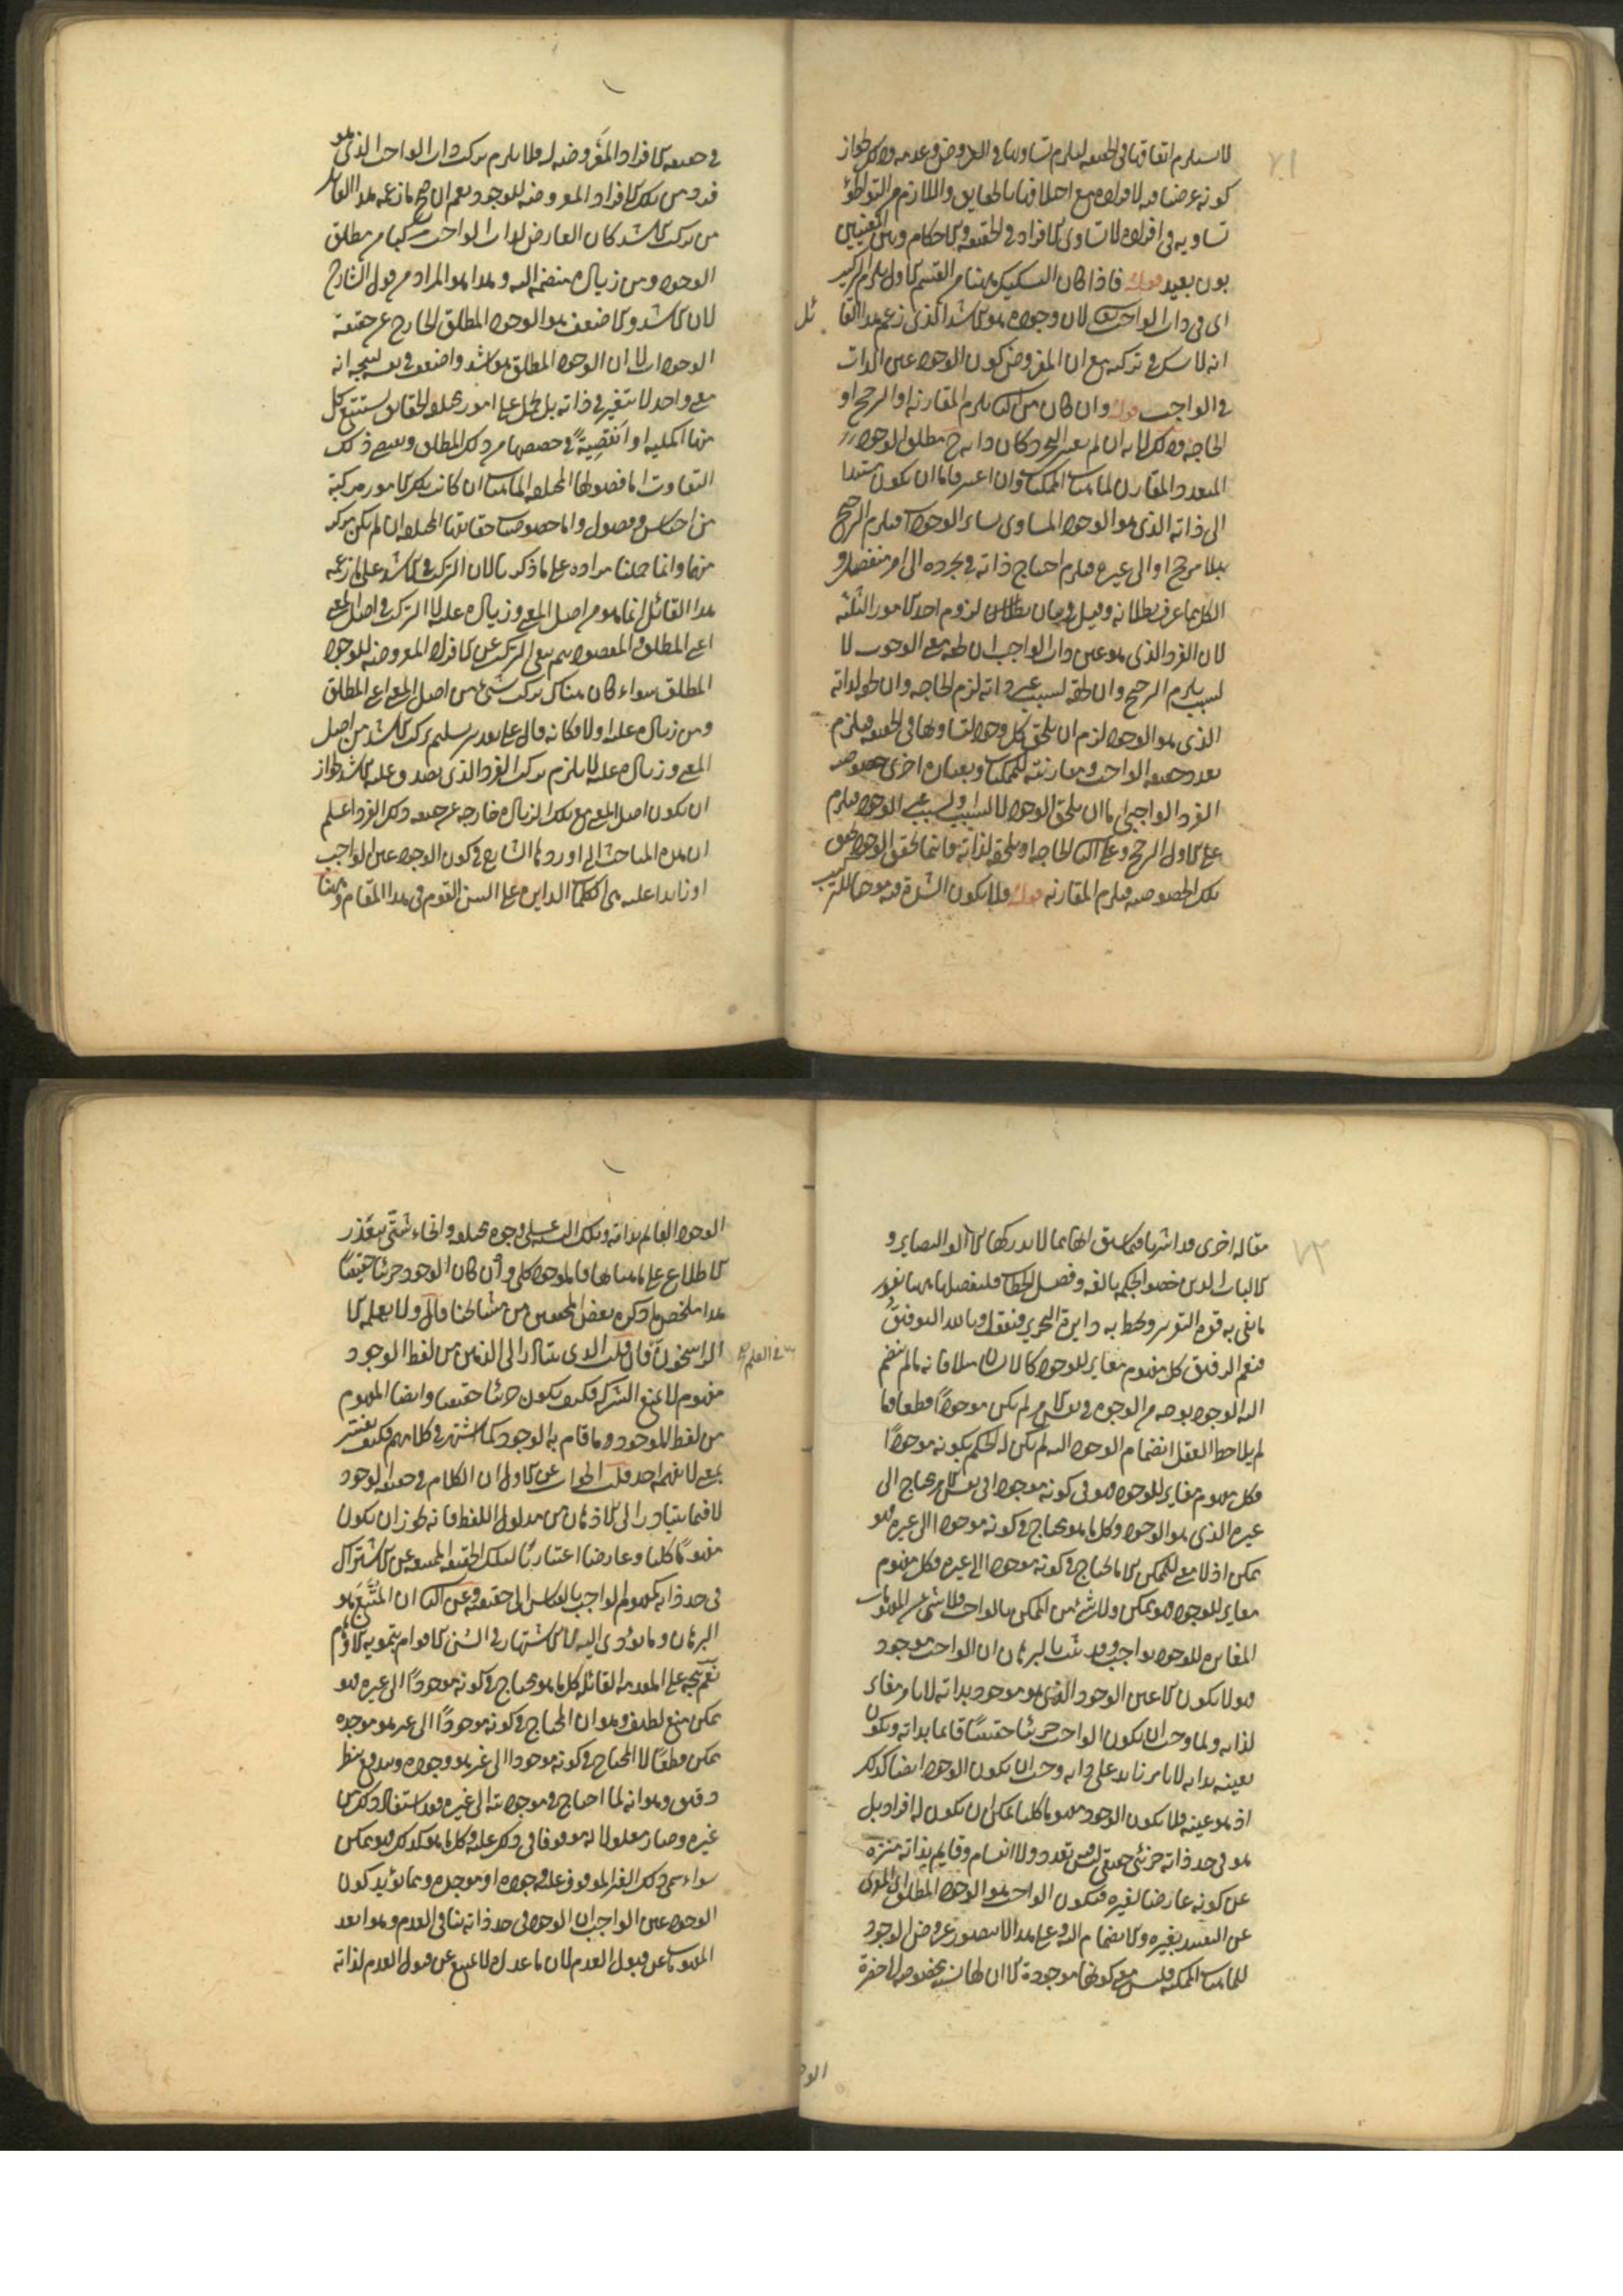 لا يستلزم اتفاقها في الحقيقة ليلزم تساويها في العروض وعدمه وذلك لجواز
كونه عرضا فيه لافراده مع اختلافها بالحقايق واللازم من التواطؤ
تساويه في افراده لا تساوى الافراد في الحقيقة والاحكام وبين المعنيين
بون بعيد قوله فاذا كان التشكيك ههنا من القسم الاول يلزم التركيب
اى في ذات الواجب لان وجوده هو الاشد الذى زعم هذا القا ئل
انه لا شك في تركبه مع ان المفروض كون الوجود عين الذات
في الواجب قوله وان كان من الثانى يلزم المقارنة او الترجيح او
الحاجة وذلك لانه ان لم يعتبر التجرد كان ذاته ح مطلق الوجود
المتعدد المقارن لماهيات الممكنات وان اعتبر فاما ان يكون مستندا
الى ذاته الذى هو الوجود المساوى لسائر الوجودات فيلزم الترجيح
بلا مرجح او الى غيره فيلزم احتياج ذاته في تجرده الى امر منفصل و
الكل مما عرف بطلانه وقيل في بيان لزوم احد الامور الثلثة
لان الفرد الذى هو عين ذات الواجب ان لحقه معنى الوجوب لا
لسبب يلزم الترجيح وان لحقه لسبب غير ذاته لزم الحاجة وان لحقه لذاته
الذى هو الوجود لزم ان يلحق كل وجود لتساويها في الحقيقة فيلزم
تعدد حقيقة الواجب ومقارنته للممكنات وبعبارة اخرى خصوصية
الفرد الواجبى اما ان يلحق الوجود لا لسبب او لسبب غير الوجود فيلزم
على الاول الترجيح وعلى الثانى الحاجة او يلحقه لذاته فاينما تحقق الوجود تحقق
تلك الخصوصية فيلزم المقارنة قوله فلا يكون الشدة فيه موجبا للتركيب
في حقيقة الافراد المعروضة له فلا يلزم تركب ذات الواجب الذى هو
فرد من تلك الافراد المعروضة للوجود نعم ان صح ما زعمه هذا القائل
من تركب الاشد كان العارض لذات الواجب مركبا من مطلق
الوجود ومن زيادة منضمة اليه وهذا هو المراد من قول الشارح
لان الاشد والاضعف هو الوجود المطلق الخارج عن حقيقة
الوجودات لا ان الوجود المطلق هو اشد واضعف في نفسه ليتجه انه
معنى واحد لا يتغير في ذاته بل يحمل على امور مختلفة الحقايق يستتبع كل
منها اكملية او انقصية في حصصها من ذلك المطلق ويقتضى ذلك
التفاوت اما فصولها المختلفة الماهيات ان كانت تلك الامور مركبة
من اجناس وفصول واما خصوصيات حقائقها المختلفة ان لم يكن تركب
منها وانما حملنا مراده على ما ذكرنا لان التركب في الاشد على ما زعمه
هذا القائل انما هو من اصل المعنى وزيادة عليه لا التركب في اصل المعنى
اعنى المطلق والمقصود ههنا نفى التركب عن الافراد المعروضة للوجود
المطلق سواء كان هناك تركب شئ من اصل المعنى اعنى المطلق
ومن زيادة عليه اولا فكانه قال على تقدير تسليم تركب الاشد من اصل
المعنى وزيادة عليه لا يلزم تركب الفرد الذى يصدق عليه الاشد لجواز
ان يكون اصل المعنى مع تلك الزيادة خارجة عن حقيقة ذلك الفرد اعلم
ان هذه المباحث التى اوردها الشارح في كون الوجود عين الواجب
او زايدا عليه هى الكلمات الدايرة على السن القوم في هذا المقام وههنا
مقالة اخرى قد اشرنا فيما سبق الى انها مما لا يدركها الا اولو البصاير و
الالباب الذين خصوا بحكمة بالغة وفصل الخطاب فلنفصلها ههنا بقدر
ما يفى به قوة التقرير ويحيط به دايرة التحرير فنقول وبالله التوفيق
فنعم الرفيق كل مفهوم مغاير للوجود كالانسان مثلا فانه ما لم ينضم
اليه الوجود بوجه من الوجوه في نفس الامر لم يكن موجودا قطعا وما
لم يلاحظ العقل انضمام الوجود اليه لم يكن له الحكم بكونه موجودا
فكل مفهوم مغاير للوجود فهو في كونه موجودا في نفس الامر يحتاج الى
غيره الذى هو الوجود وكل ما هو محتاج في كونه موجودا الى غيره فهو
ممكن اذ لا معنى للممكن الا ما يحتاج في كونه موجودا الى غيره فكل مفهوم
مغاير للوجود فهو ممكن ولا شئ من الممكن بالواجب فلا شئ من المفهومات
المغايرة للوجود بواجب وقد ثبت بالبرهان ان الواجب موجود
فهو لا يكون الا عين الوجود الذى هو موجود بذاته لا بامر مغاير
لذاته ولما وجب ان يكون الواجب جزئيا حقيقيا قايما بذاته ويكون
تعينه بذاته لا بامر زايد على ذاته وجب ان يكون الوجود ايضا كذلك
اذ هو عينه فلا يكون الوجود مفهوما كليا يمكن ان يكون له افراد بل
هو في حد ذاته جزئى حقيقى ليس فيه تعدد ولا انقسام وقايم بذاته منزه
عن كونه عارضا لغيره فيكون الواجب هو الوجود المطلق اى المعرى
عن التقييد بغيره والانضمام اليه وعلى هذا لا يتصور عروض الوجود
للماهيات الممكنة فليس معنى كونها موجودة الا ان لها نسبة مخصوصة الى حضرة
الو
الوجود القايم بذاته وتلك النسبة على وجوه مختلفة وانحاء شتى يتعذر
الاطلاع على ماهياتها فالموجود كلى وان كان الوجود جزئيا حقيقيا
هذا ملخص ما ذكره بعض المحققين من مشايخنا قال ولا يعلمه الا
الراسخون في العلم فان قلت الذى يتبادر الى الذهن من لفظ الوجود
مفهوم لا يمنع الشركة فكيف يكون جزئيا حقيقيا وايضا المفهوم
من لفظ الموجود وما قام به الوجود كما اشتهر في كلامهم فكيف يفسر
بمعنى لا يفهمه احد قلت الجواب عن الاول ان الكلام في حقيقة الوجود
لا فيما يتبادر الى الاذهان من مدلول اللفظ فانه يجوز ان يكون
مفهوما كليا وعارضا اعتباريا لتلك الحقيقة الممتنعة عن الاشتراك
في حد ذاته كمفهوم الواجب بالقياس الى حقيقته وعن الثانى ان المتبع هو
البرهان وما يؤدى اليه لا الاشتهار في السن الاقوام بتمويه الاوهام
نعم يتجه على المقدمة القائلة كل ما هو محتاج في كونه موجودا الى غيره فهو
ممكن منع لطيف وهو ان المحتاج في كونه موجودا الى غير هو موجده
ممكن قطعا لا المحتاج في كونه موجودا الى غير هو وجوده ويندفع بنظر
دقيق وهو انه لما احتاج في موجوديته الى غيره فقد استفاد ذلك من
غيره وصار معلولا له موقوفا في ذلك عليه وكل ما هو كذلك فهو ممكن
سواء سمى ذلك الغير الموقوف عليه وجوده او موجده ومما يؤيد كون
الوجود عين الواجب ان الوجود في حد ذاته ينافى العدم وهو ابعد
المفهومات عن قبول العدم لان ما عداه لا يمتنع عن قبول العدم لذاته